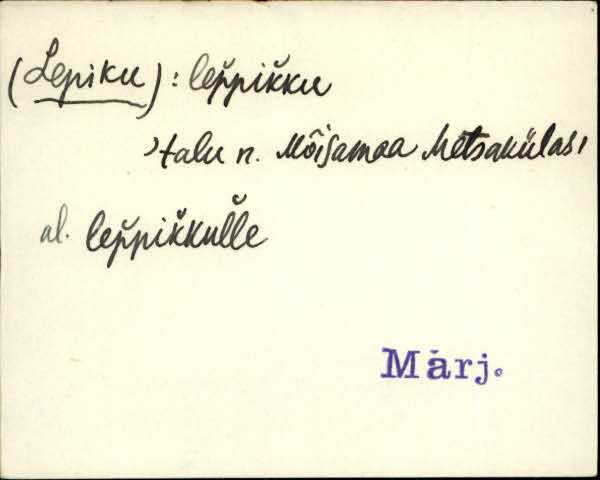 (Lepiku): lep̆pik̆ku
'talu n. Mõisamaa Metsakülas,
al. lep̆pik̆kul̆le
Märj.